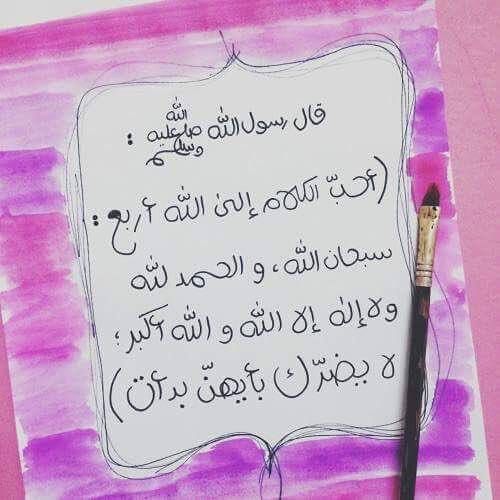 قال رسول الله صلى الله عليه وسلم :
(أحبّ الكلام إلى الله أربع :
سبحان الله ، و الحمد لله
ولا إله إلا الله و الله أكبر ؛
لا يضرّك بأيهنّ بدأت)